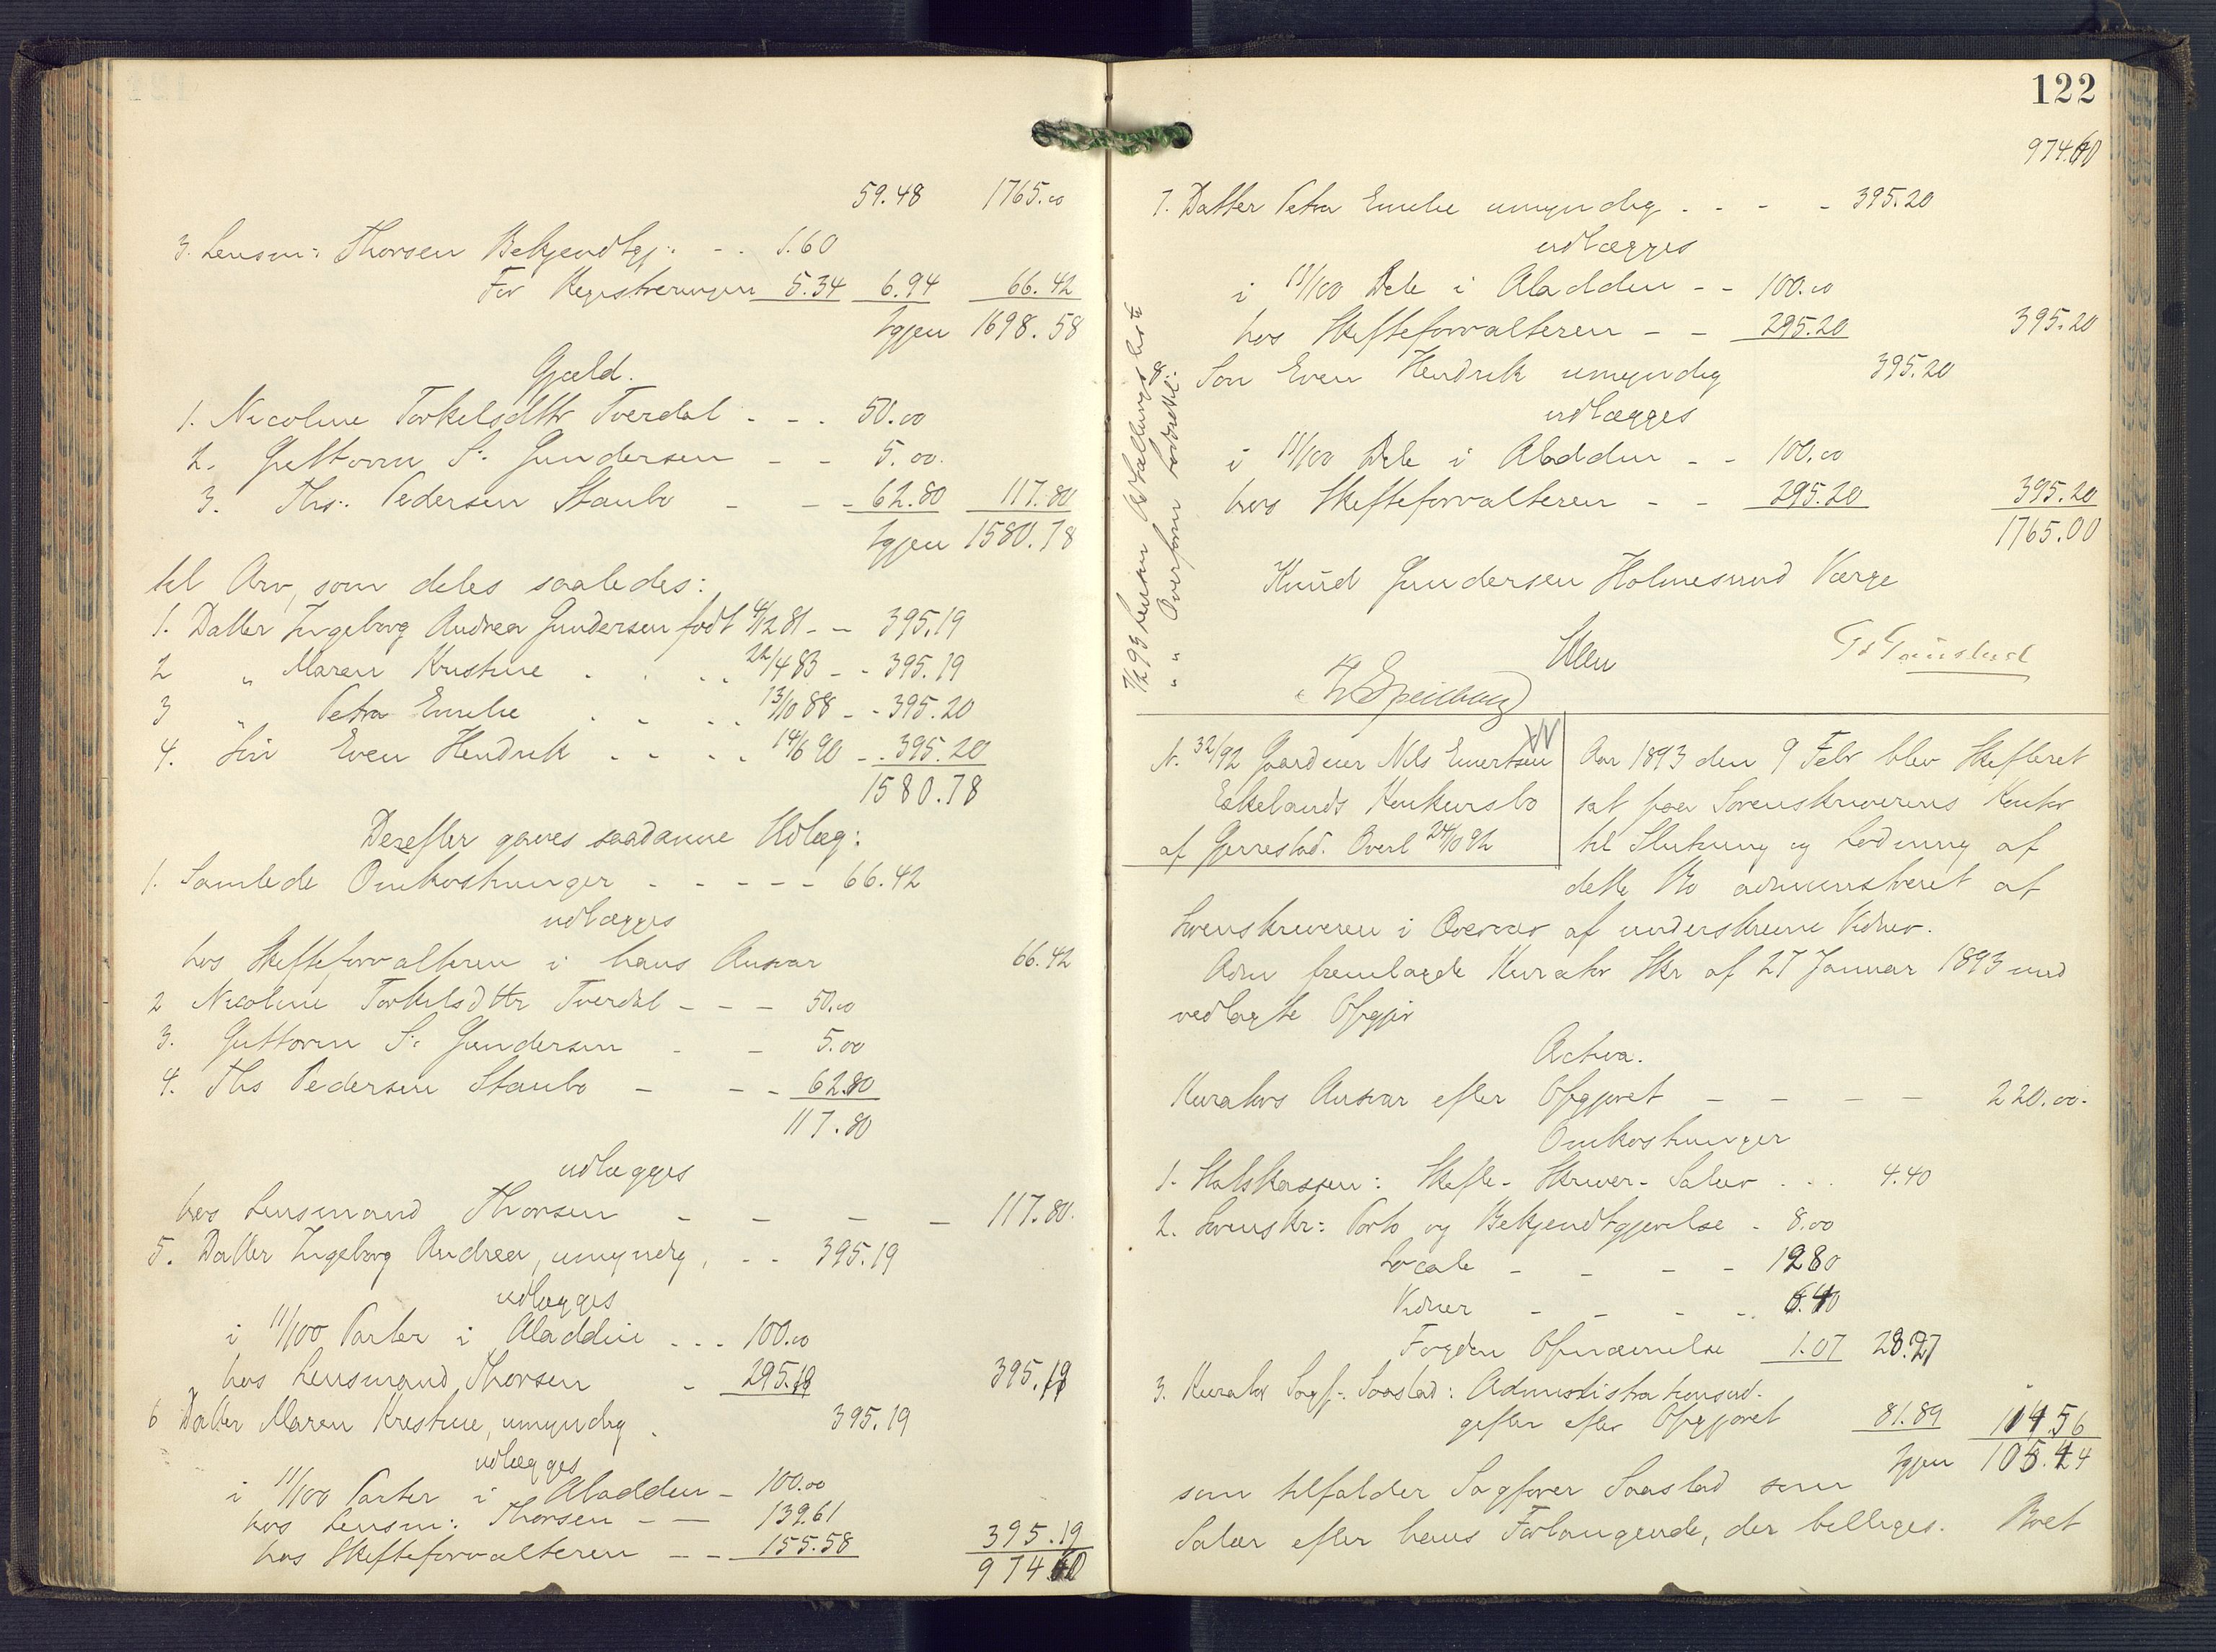 59.48 1765.00
3. Lensm: Thorsen Bekjendtgj: - - 1.60
For Registreringen 5.34 6.94 66.42
Igjen 1698.58
Gjæld.
1. Nicoline Torkelsdttr Tverdal - - - 50.00
2. Guttorm S. Gundersen - - 5.00
3. Ths. Pedersen Staubo - - - 62.80 117.80
Igjen 1580.78
til Arv, som deles saaledes:
1. Datter Ingeborg Andrea Gundersen født 4/12 81 - - 395.19
2 " Maren Kristine . . . . 22/4 83 - - 395.19
3 " Petra Emelie . . . . 13/10 88 - - 395.20
4. Søn Even Hendrik . . . . 14/6 90 - . 395.20
1580.78
Derefter gaves saadanne Udlæg:
1. Samlede Omkostninger - - - - - 66.42
udlægges
hos Skifteforvalteren i hans Ansvar 66.42
2 Nicoline Torkelsdttr Tverdal - - - 50.00
3. Guttorm S. Gundersen - - 5.00
4. Ths Pedersen Staubo - - - 62.80
117.80
udlægges
hos Lensmand Thorsen - - - - 117.80.
5. Datter Ingeborg Andrea, umyndig, - - 395.19
udlægges
i 11/100 Parter i Aladdin - - - 100.00
hos Lensmand Thorsen - 295.19 395.19
6 Datter Maren Kristine, umyndig . 395.19
udlægges
i 11/100 Parter i Aladden - 100.00
hos Lensm: Thorsen - - 139.61
hos Skifteforvalteren - - 155.58 395.19
974.60
122
974.60
7. Datter Petra Emelie umyndig - - - - 395.20
udlægges
i 11/100 Dele i Aladden - - 100.00
hos Skifteforvalteren - - 295.20 395.20
8. Søn Even Hendrik umyndig 395.20
udlægges
i 11/100 Dele i Aladden - - 100.00
hos Skifteforvalteren - - 295.20 395.20
1765.00
Knud Gundersen Holmesund Værge
N. 32/92 Gaardeier Nils Evertsen
Eskelands Konkursbo
af Gjerrestad. Overl 24/10 92
Aar 1893 den 9 Febr blev Skifteret
sat paa Sorenskriverens Kontor
til Slutning og Lodning af
dette Bo administreret af
Sorenskriveren i Overvær af underskrevne Vidner.
Adm fremlagde Kurators Skr af 27 Januar 1893 med
vedlagte Opgjør
Activa.
Kurators Ansvar efter Opgjøret - - - - 220.00.
Omkostninger
1. Statskassen: Skifte- Skriver- Salær . . . 4.40
2. Sorenskr: Porto og Bekjendtgjørelse - 8.00
Locale - - - - 12.80
Vidner - - - - 6.40
Fogden Opnævnelse 1.07 28.27
3. Kurator Sagf. Saastad: Administrationsud-
gifter efter Opgjøret 81.89 114.56
Igjen 105.44
som tilfalder Sagfører Saastad som
Salær efter hans Forlangende, der billiges. Boet